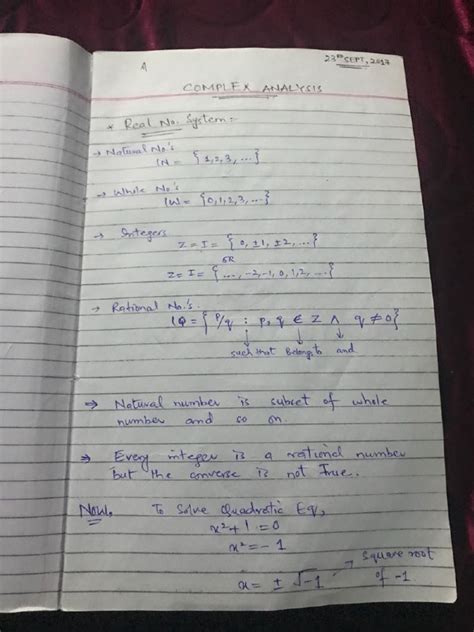 A
23rd SEPT, 2017
COMPLEX ANALYSIS
* Real No. System:-
→ Natural No's
IN = { 1,2,3, ...}
→ Whole No's
IW = {0,1,2,3, ...}
→ Integers
Z = I = { 0, ±1, ±2, ...}
OR
Z = I = { ..., -2,-1,0,1,2, ...}
→ Rational No.'s.
IQ = { p/q : p, q ∈ Z ∧ q ≠ 0}
such that Belongs to and
⇒ Natural number is subset of whole
number and so on.
⇒ Every integer is a rational number
but the converse is not True.
Now. To Solve Quadratic Eq,
x²+1 = 0
x² = -1
x = ± √-1 → square root
of -1